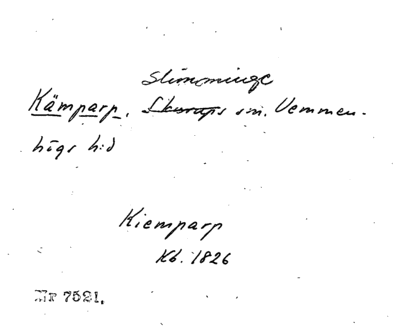 Slimminge
Kämparp, Skurups sn. Vemmen-
högs hd
Kiemparp
Kb. 1826
Nr 7521.